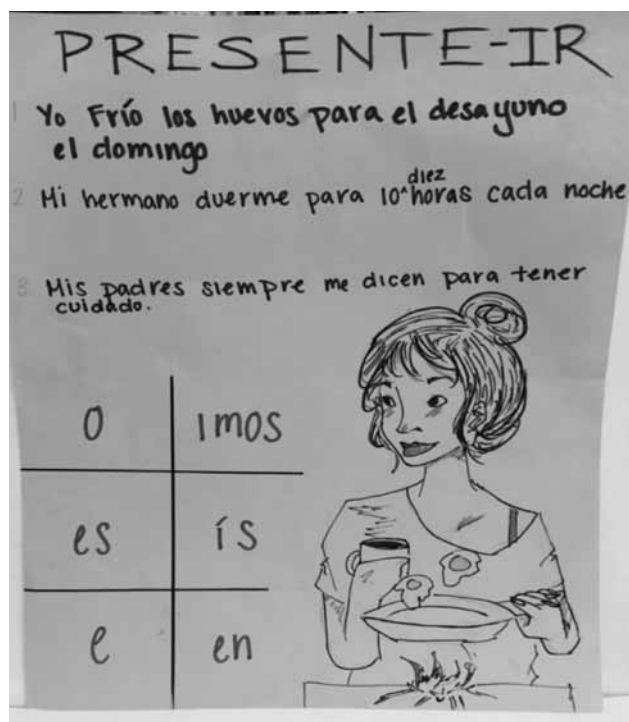 PRESENTE-IR
1 Yo Frío los huevos para el desayuno
el domingo
diez
2 Mi hermano duerme para 10^horas cada noche
3 Mis padres siempre me dicen para tener
cuidado.
o imos
es ís
e en